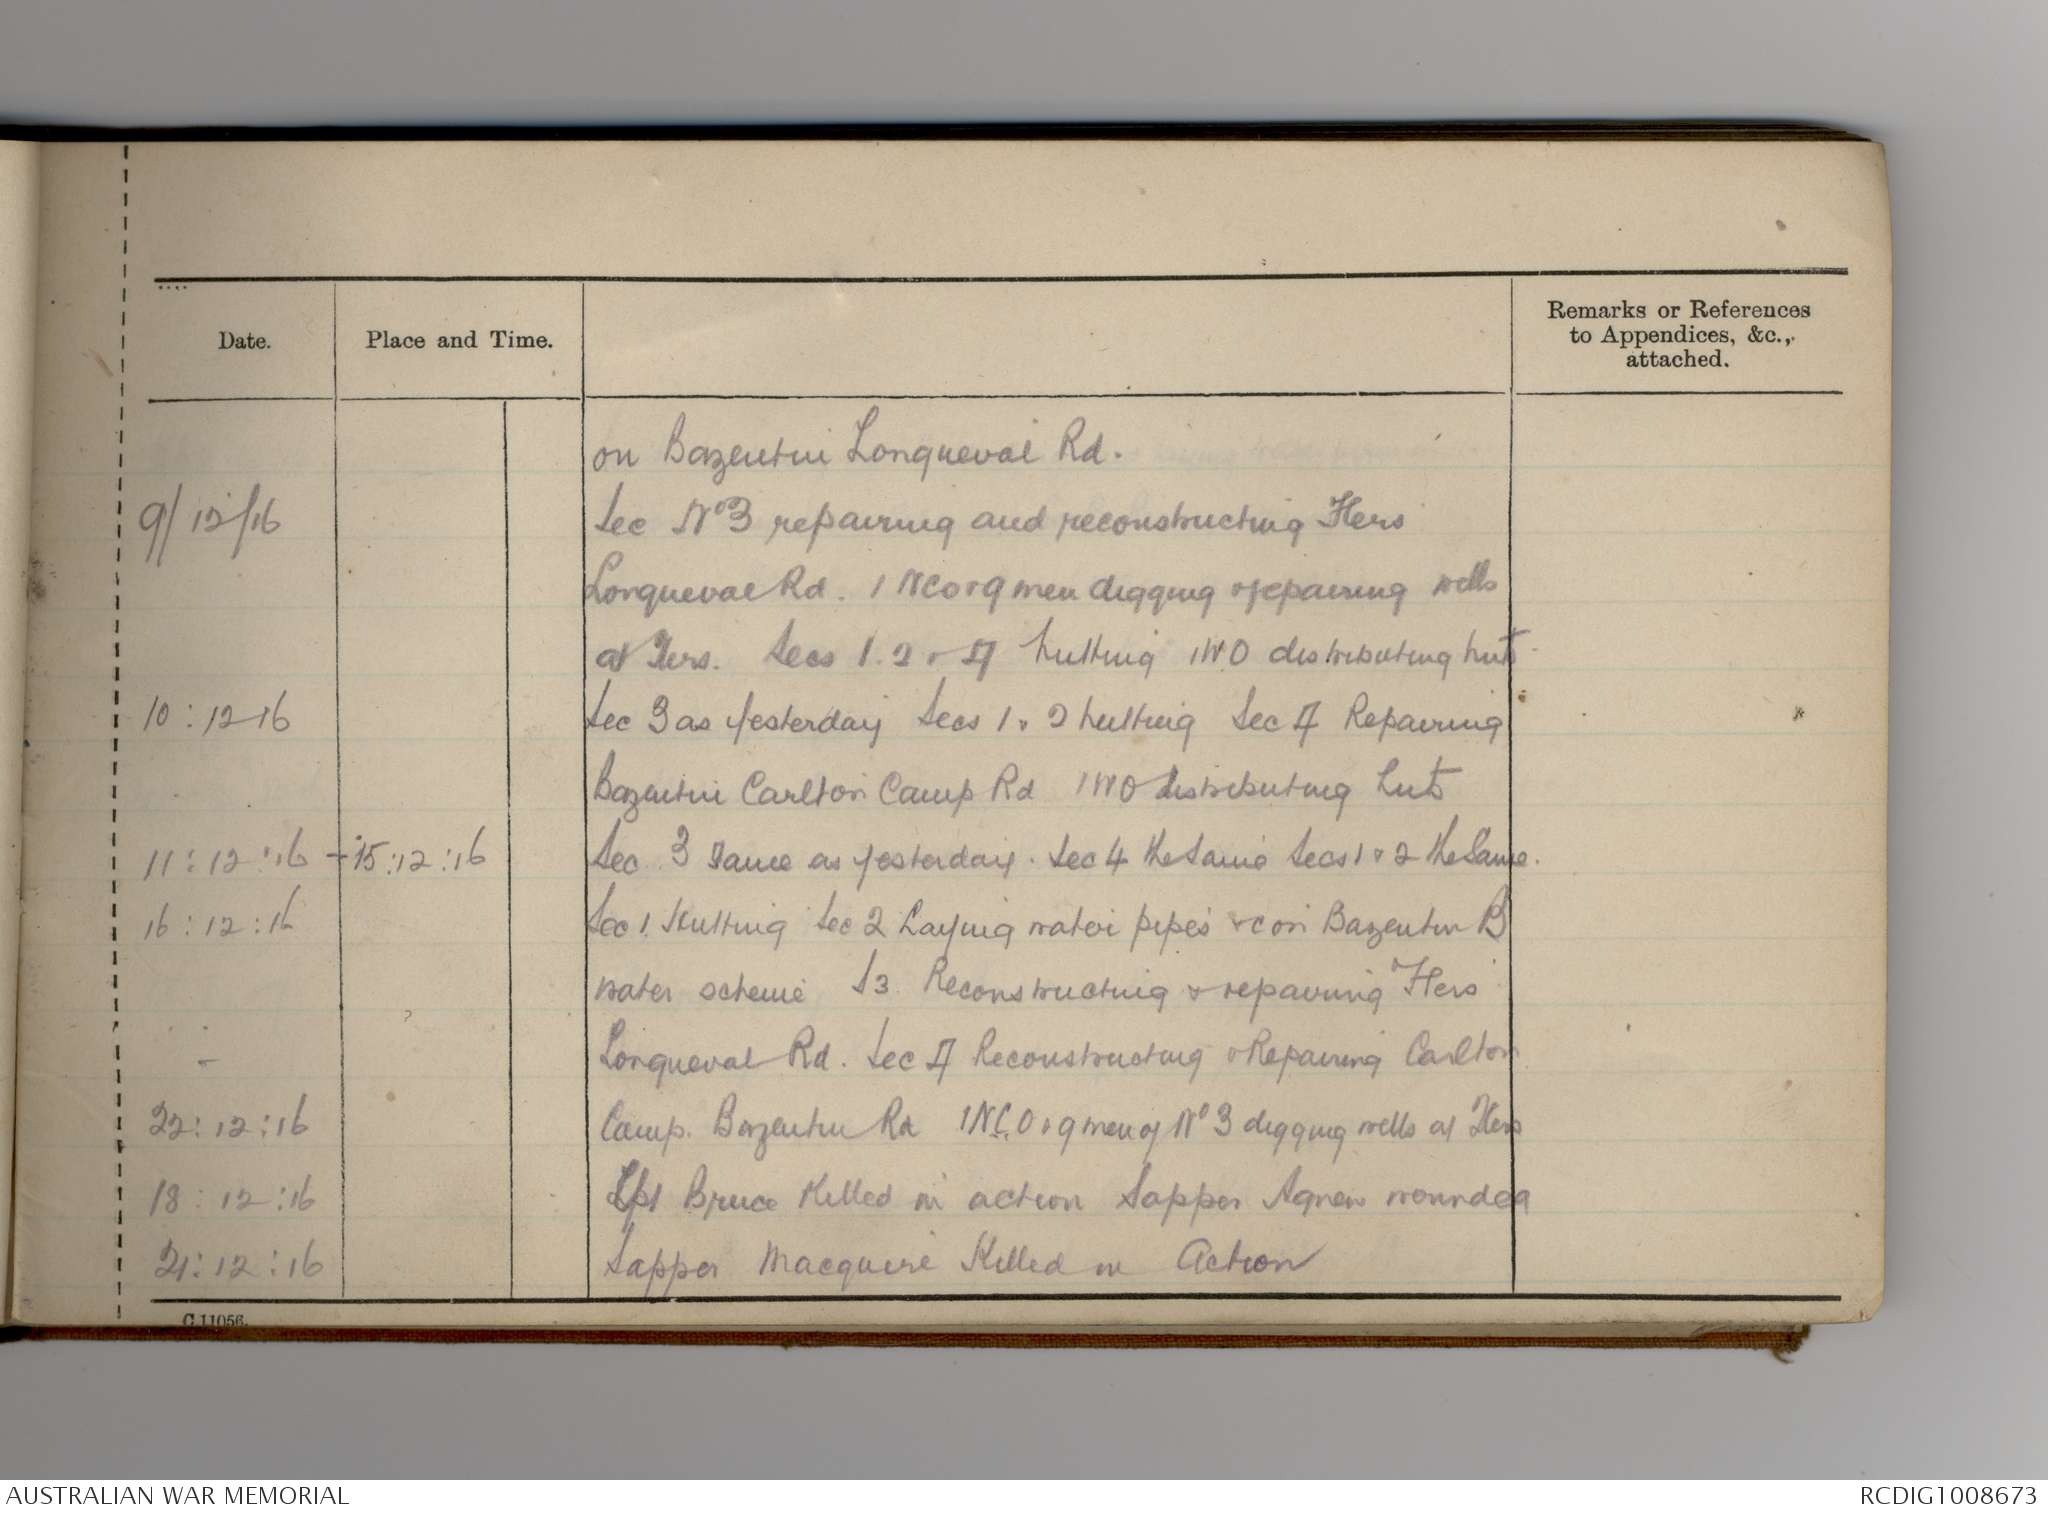 Date. Place and Time. Remarks or References
to Appendices, &c.,
attached.
on Bazentin Longueval Rd.
9/12/16 Sec No 3 repairing and reconstructing Flers
Longueval Rd. 1 NCO & 9 men digging & repairing wells
at Flers. Secs 1. 2 & 4 hutting 1 WO distributing huts.
10:12 16 Sec 3 as yesterday Secs 1 & 2 hutting Sec 4 Repairing
Bazentin Carlton Camp Rd 1 WO distributing huts
11:12:16 - 15:12:16 Sec 3 Same as yesterday. Sec 4 the Same Secs 1 & 2 the Same.
16:12:16 Sec 1 Hutting Sec 2 Laying water pipes &c on Bazentin B
water scheme S3. Reconstructing & repairing Flers
Longueval Rd. Sec 4 Reconstructing & Repairing Carlton
22:12:16 Camp. Bazentin Rd 1 NCO & 9 men of No 3 digging wells at Flers
18:12:16 Bruce Killed in action Sapper Agnew wounded
21:12:16 Sapper Macquire Killed in Action
C.11056.
AUSTRALIAN WAR MEMORIAL RCDIG1008673